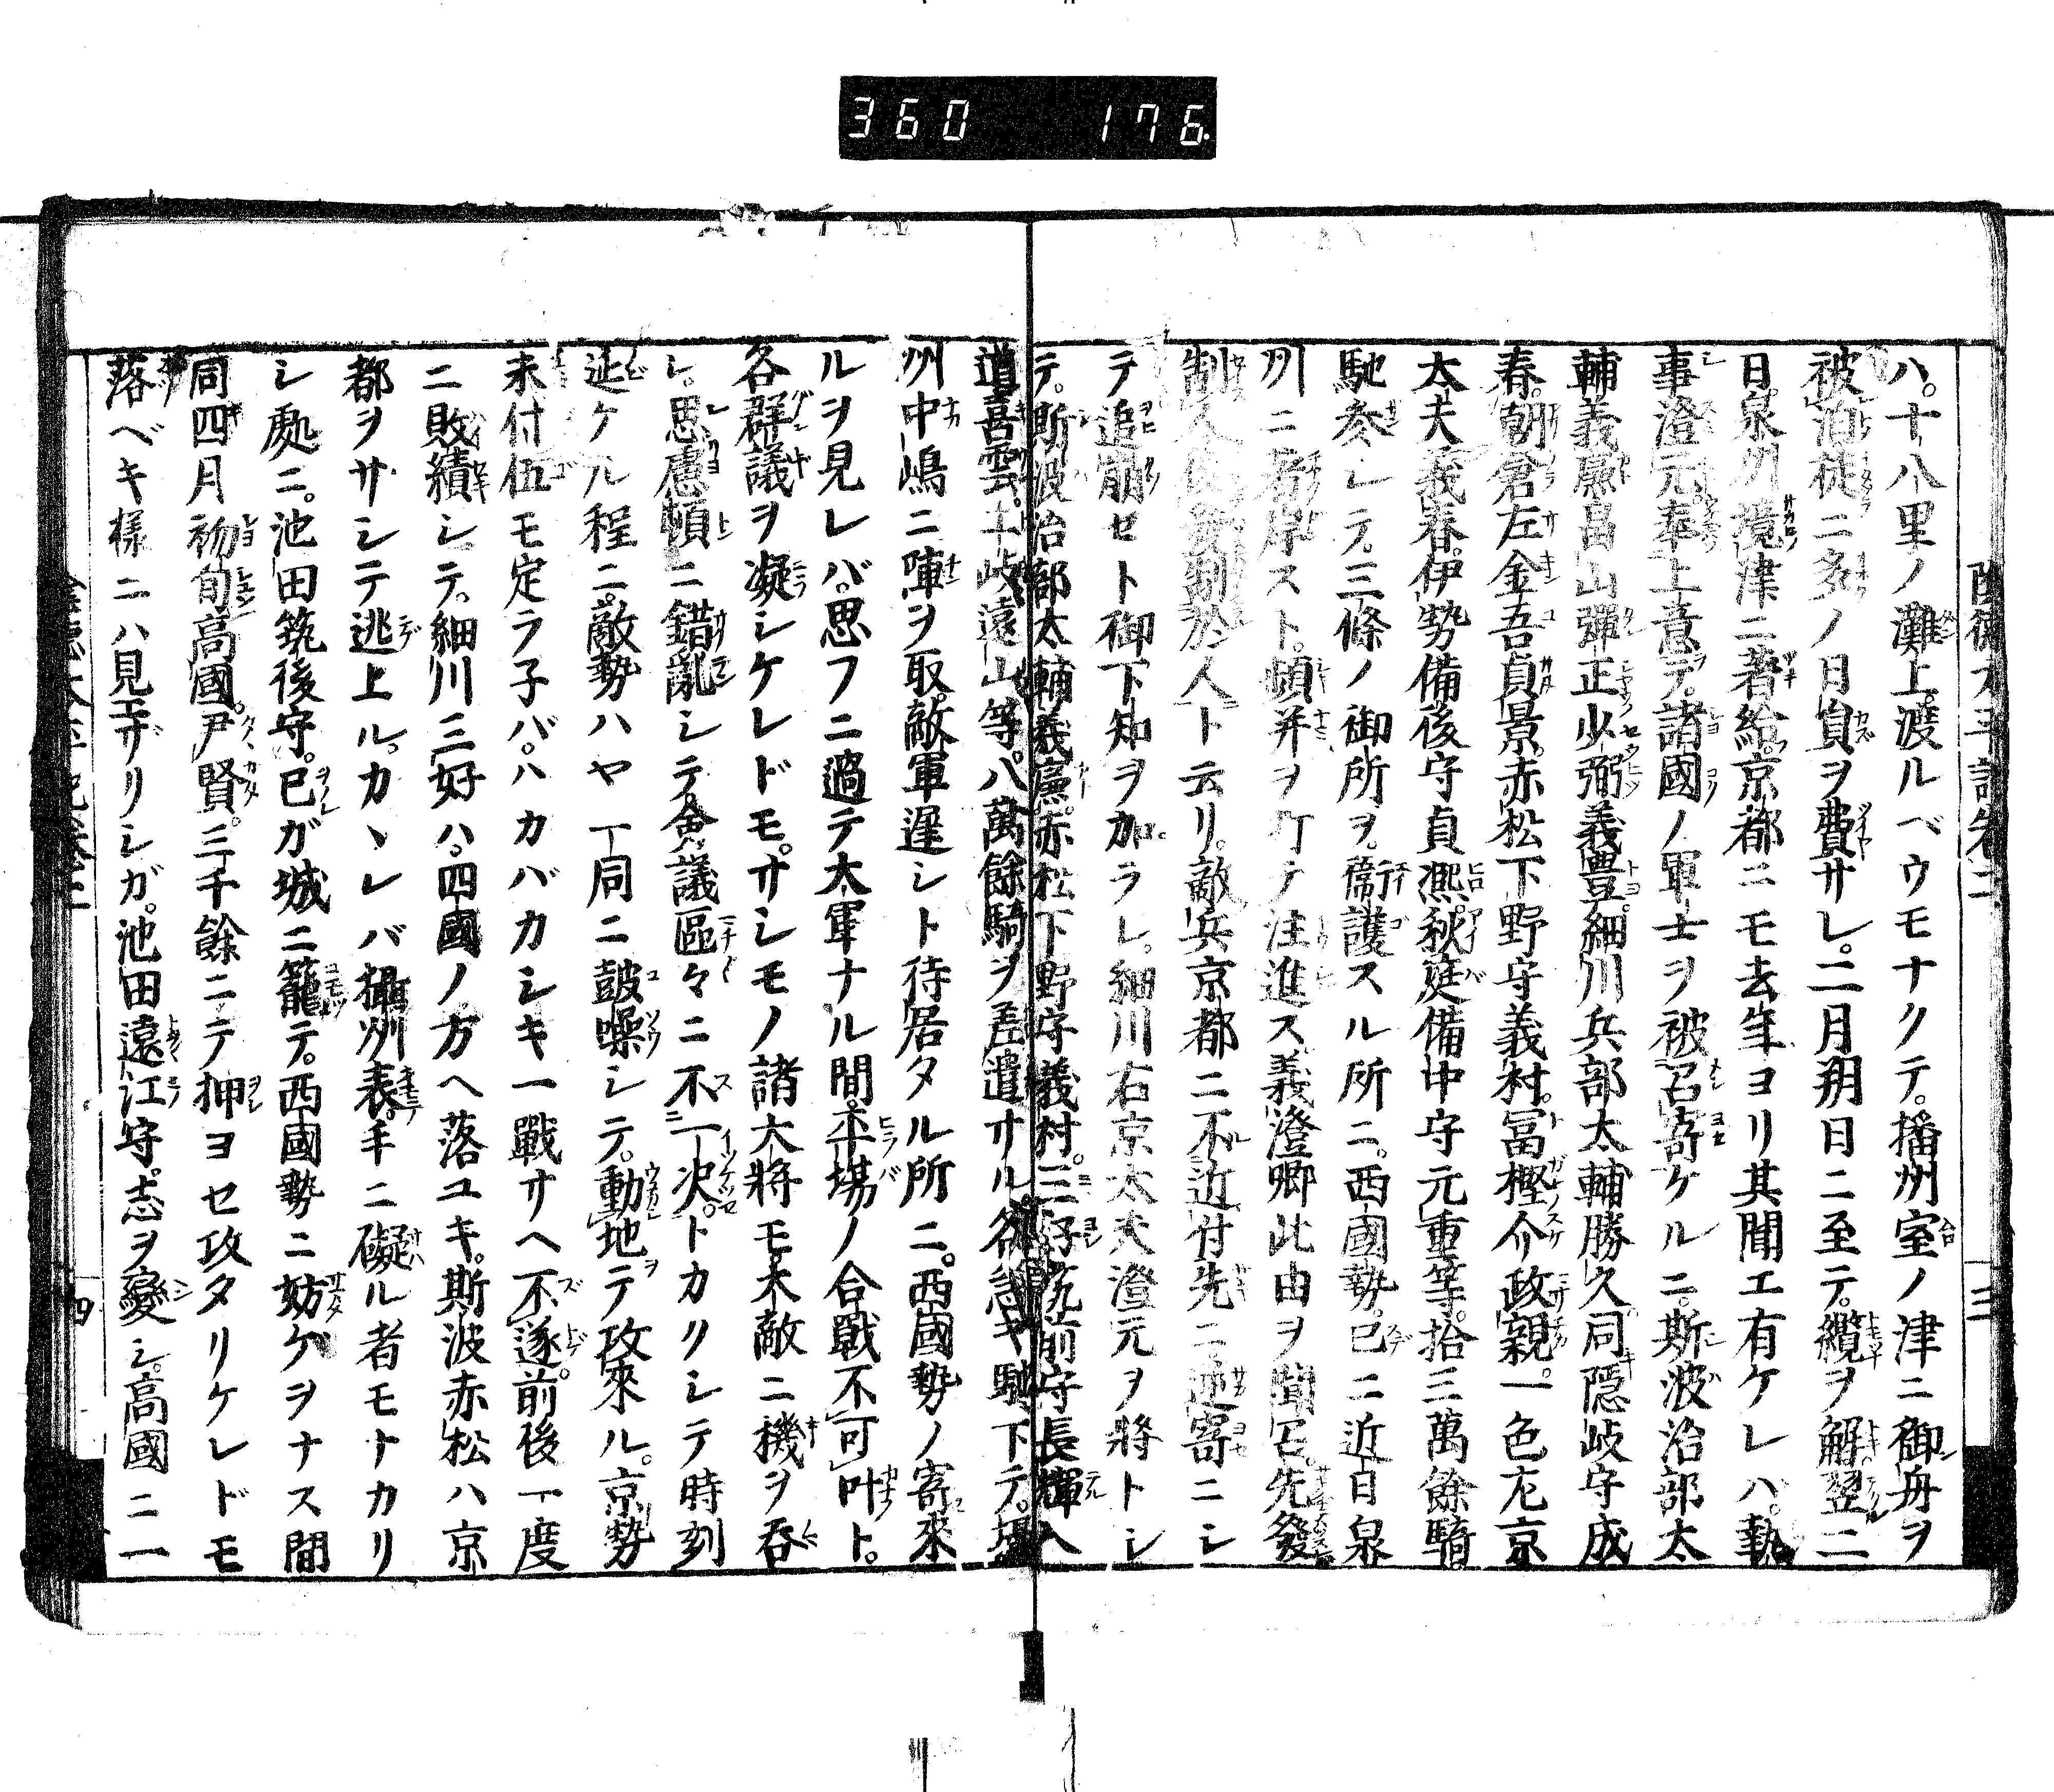 360 176
陰徳太平記卷二 三
ハ。十八里ノ灘上渡ルベウモナクテ。播州室ノ津ニ御舟ヲ
被泊徒ニ多ノ日負ヲ費サレ。二月朔日ニ至テ。纜ヲ解翌二
日。泉州境津ニ著給。京都ニモ去年ヨリ其聞エ有ケレバ。執
事澄元奉上意テ。諸國ノ軍士ヲ被召寄ケルニ。斯波治部太
輔義 畠山彈正少弼義豊細川兵部太輔勝久。同隠岐守成
春。朝倉左金吾貞景。赤松下野守義村。冨樫介政親。一色左京
太夫義春。伊勢備後守貞凞。秋庭備中守元重等。拾三萬餘騎
馳参レテ。三條ノ御所ヲ。衞護スル所ニ。西國勢已ニ近日泉
州ニ著岸スト。頻并ヲ打テ注進ス。義澄卿此由ヲ聞召。先發
制人後發制於人ト云リ。敵兵京都ニ不近付先ニ逆寄ニシ
テ追崩セト御下知ヲ加ラレ。細川右京太夫澄元ヲ將トシ
テ。斯波治部太輔義廉。赤松下野守義村。三好筑前守長輝入
道喜雲。土岐遠山等。八萬餘騎ヲ差遣サル。各急キ馳下テ。攝
州中嶋ニ陣ヲ取。敵軍遅シト待居タル所ニ。西國勢ノ寄來
ルヲ見レバ。思フニ過テ大軍ナル間。平場ノ合戰不可叶ト。
各群議ヲ凝シケレドモ。サシモノ諸大將モ大敵ニ機ヲ呑
レ。思慮頓ニ錯亂シテ僉議區々ニ不一决。トカクシテ時刻
延ケル程ニ。敵勢ハヤ一同ニ鼓噪シテ。動地テ攻來ル。京勢
未付伍モ定ラ子バ。ハカバカシキ一戰サヘ不遂。前後一度
ニ敗績シテ。細川三好ハ。四國ノ方ヘ落ユキ。斯波赤松ハ京
都ヲサシテ逃上ル。カヽレバ攝州表。手ニ礙ル者モナカリ
シ處ニ。池田筑後守。已ガ城ニ籠テ。西國勢ニ妨ゲヲナス間
同四月初旬高國。尹賢。三千餘ニテ押ヨセ攻タリケレドモ
落ベキ様ニハ見エザリシガ。池田遠江守。志ヲ變シ。高國ニ一
陰徳太平記卷二 四